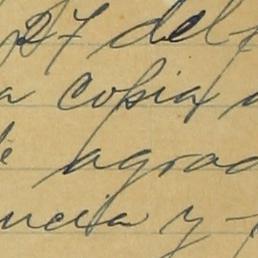 27 del
a copia
de agrad
ncia y